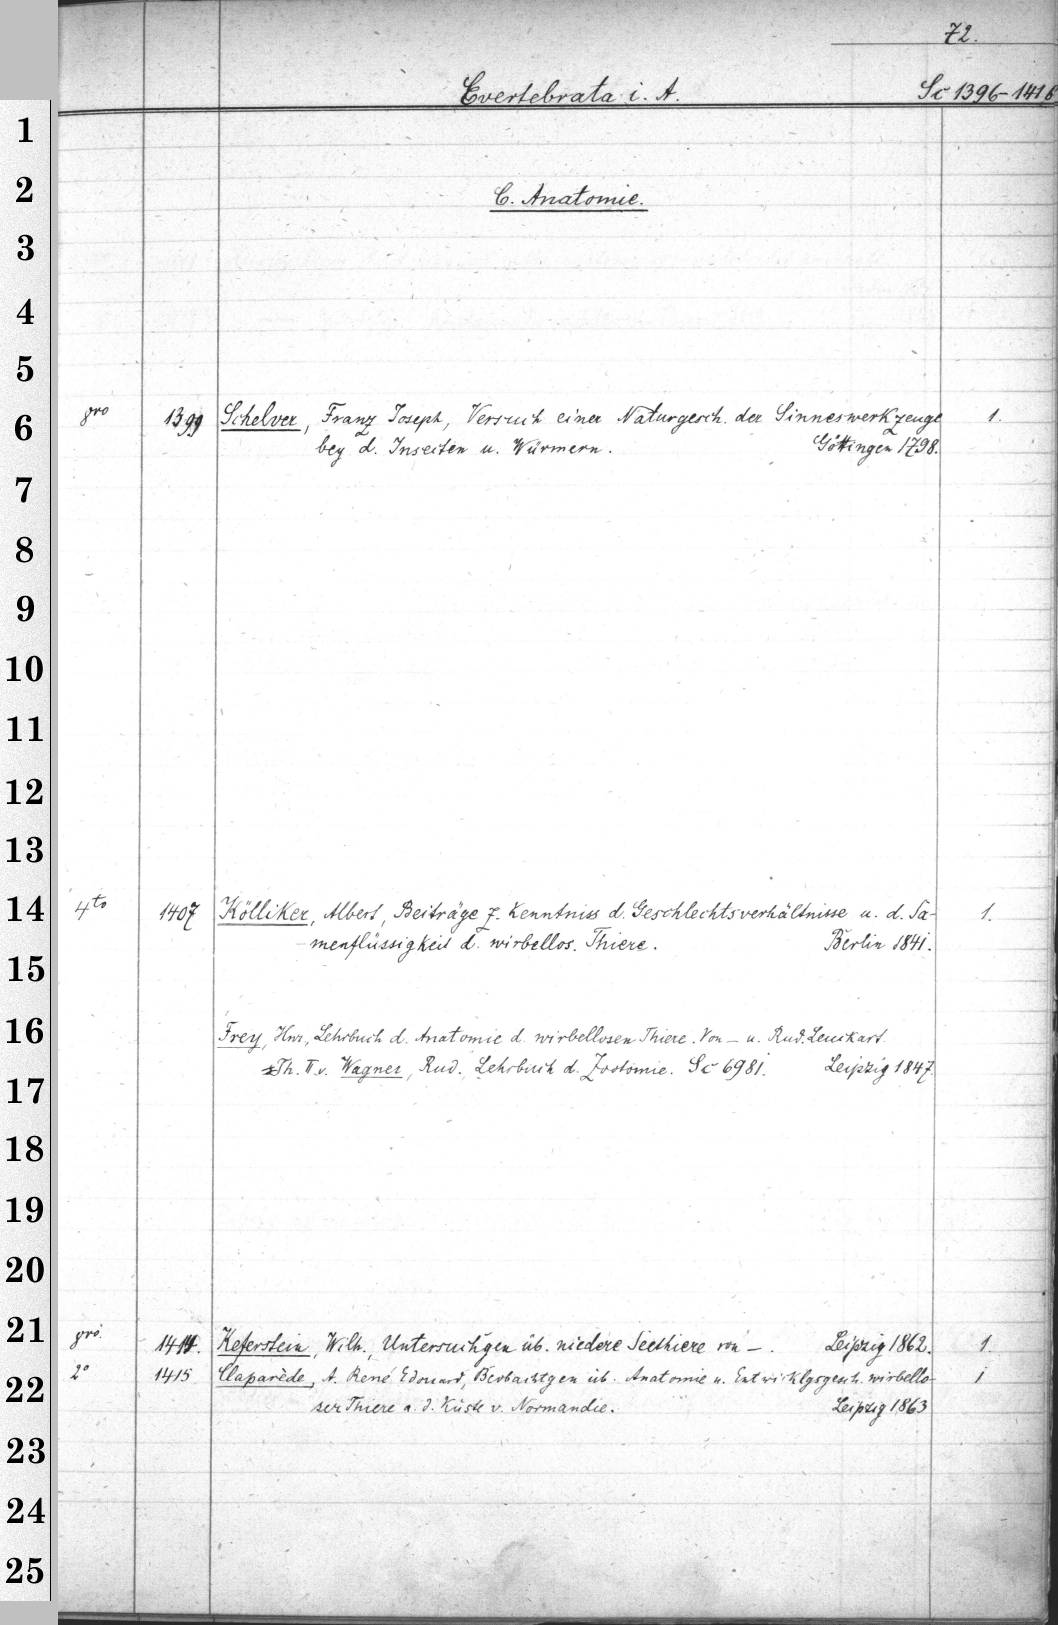 72.
Evertebrata i. A. Sc 1396-1416
C. Anatomie.
gro 1399 Schelver, Franz Joseph, Versuch einer Naturgesch. der Sinneswerkzeuge 1.
bey d. Insecten u. Würmern. Göttingen 1798.
4to 1407 Kölliker, Albert, Beiträge z. Kenntniss d. Geschlechtsverhältnisse u. d. Sa- 1.
menflüssigkeit d. wirbellos. Thiere. Berlin 1841.
Frey, Hnr, Lehrbuch d. Anatomie d. wirbellosen Thiere. Von — u. Rud. Leuckart.
Th. II v. Wagner, Rud. Lehrbuch d. Zootomie. Sc 6981. Leipzig 1847.
gro. 1414. Keferstein, Wilh., Untersuchgen üb. niedere Seethiere von —. Leipzig 1862. 1
2° 1415 Claparède, A. René Edouard, Beobachtgen üb. Anatomie u. Entwicklgsgesch. wirbello- 1
ser Thiere a. d. Küste v. Normandie. Leipzig 1863
1
2
3
4
5
6
7
8
9
10
11
12
13
14
15
16
17
18
19
20
21
22
23
24
25